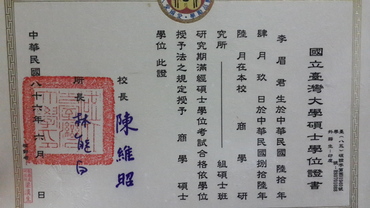 國立臺灣大學碩士學位證書
李眉君生於中華民國陸拾年
肆月玖日於中華民國捌拾陸年
陸月在本校商學研
究所組碩士班
研究期滿經碩士學位考試合格依學位
授予法之規定授予商學碩士
學位此證
校長陳維昭
所長林能白
中華民國八十六年六月日